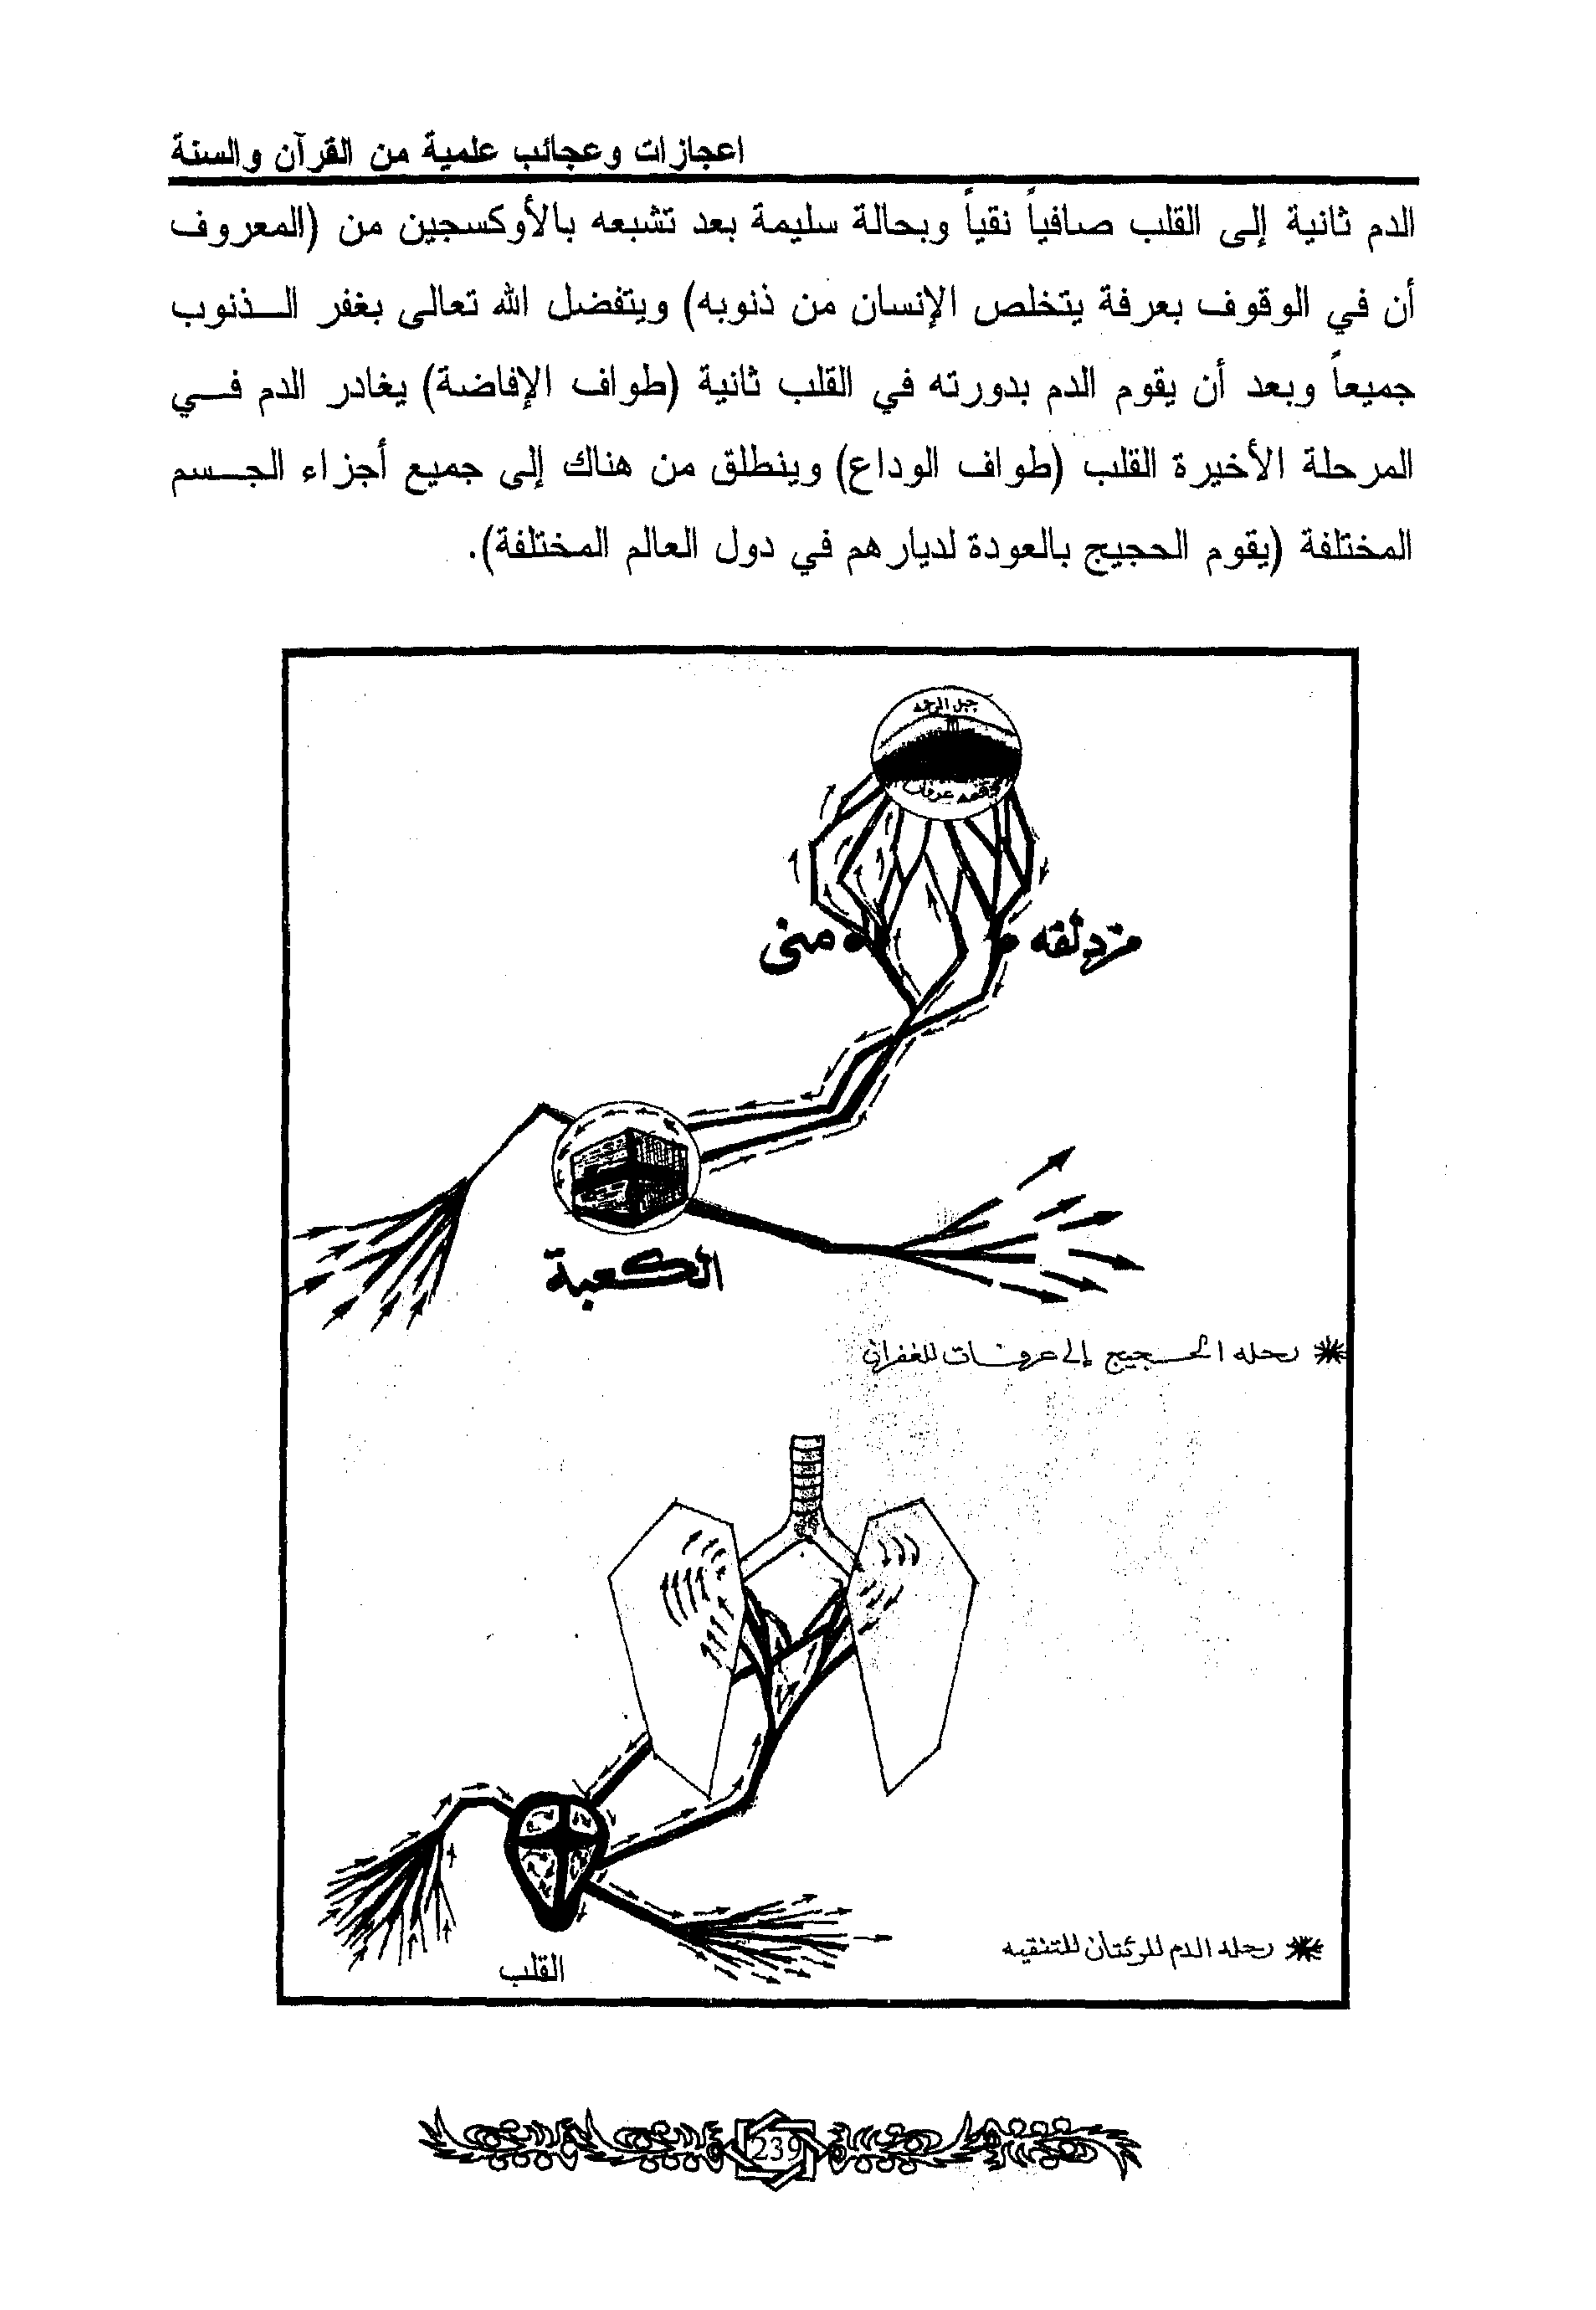 اعجازات وعجائب علمية من القرآن والسنة
الدم ثانية إلى القلب صافياً نقياً وبحالة سليمة بعد تشبعه بالأوكسجين من (المعروف
أن في الوقوف بعرفة يتخلص الإنسان من ذنوبه) ويتفضل الله تعالى بغفر الـــذنوب
جميعاً وبعد أن يقوم الدم بدورته في القلب ثانية (طواف الإفاضة) يغادر الدم فـــي
المرحلة الأخيرة القلب (طواف الوداع) وينطلق من هناك إلى جميع أجزاء الجـــسم
المختلفة (يقوم الحجيج بالعودة لديارهم في دول العالم المختلفة).
جبل الرحمه
عرفات
مزدلفه
منى
الكعبة
رحله الحجيج إلى عرفات للغفران
القلب
رحله الدم للرئتان للتنقيه
239